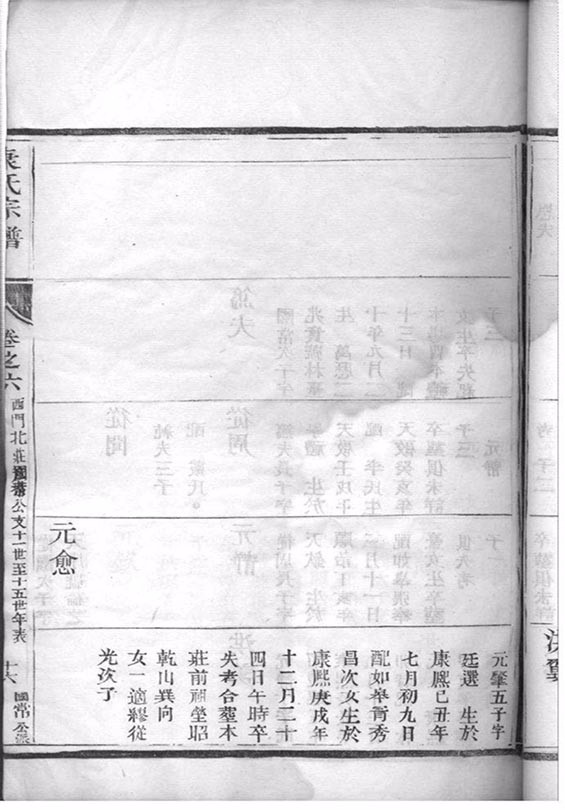 元愈
元肇五子字
廷選 生於
康熙己丑年
七月初九日
配如皋胥秀
昌次女生於
康熙庚戌年
十二月二十
四日午時卒
失考合塟本
莊前祖塋昭
乾山巽向
女一適繆從
光次子
袁氏宗譜
卷之六
西門北莊國常公支十一世至十五世年表
十六
國常公派